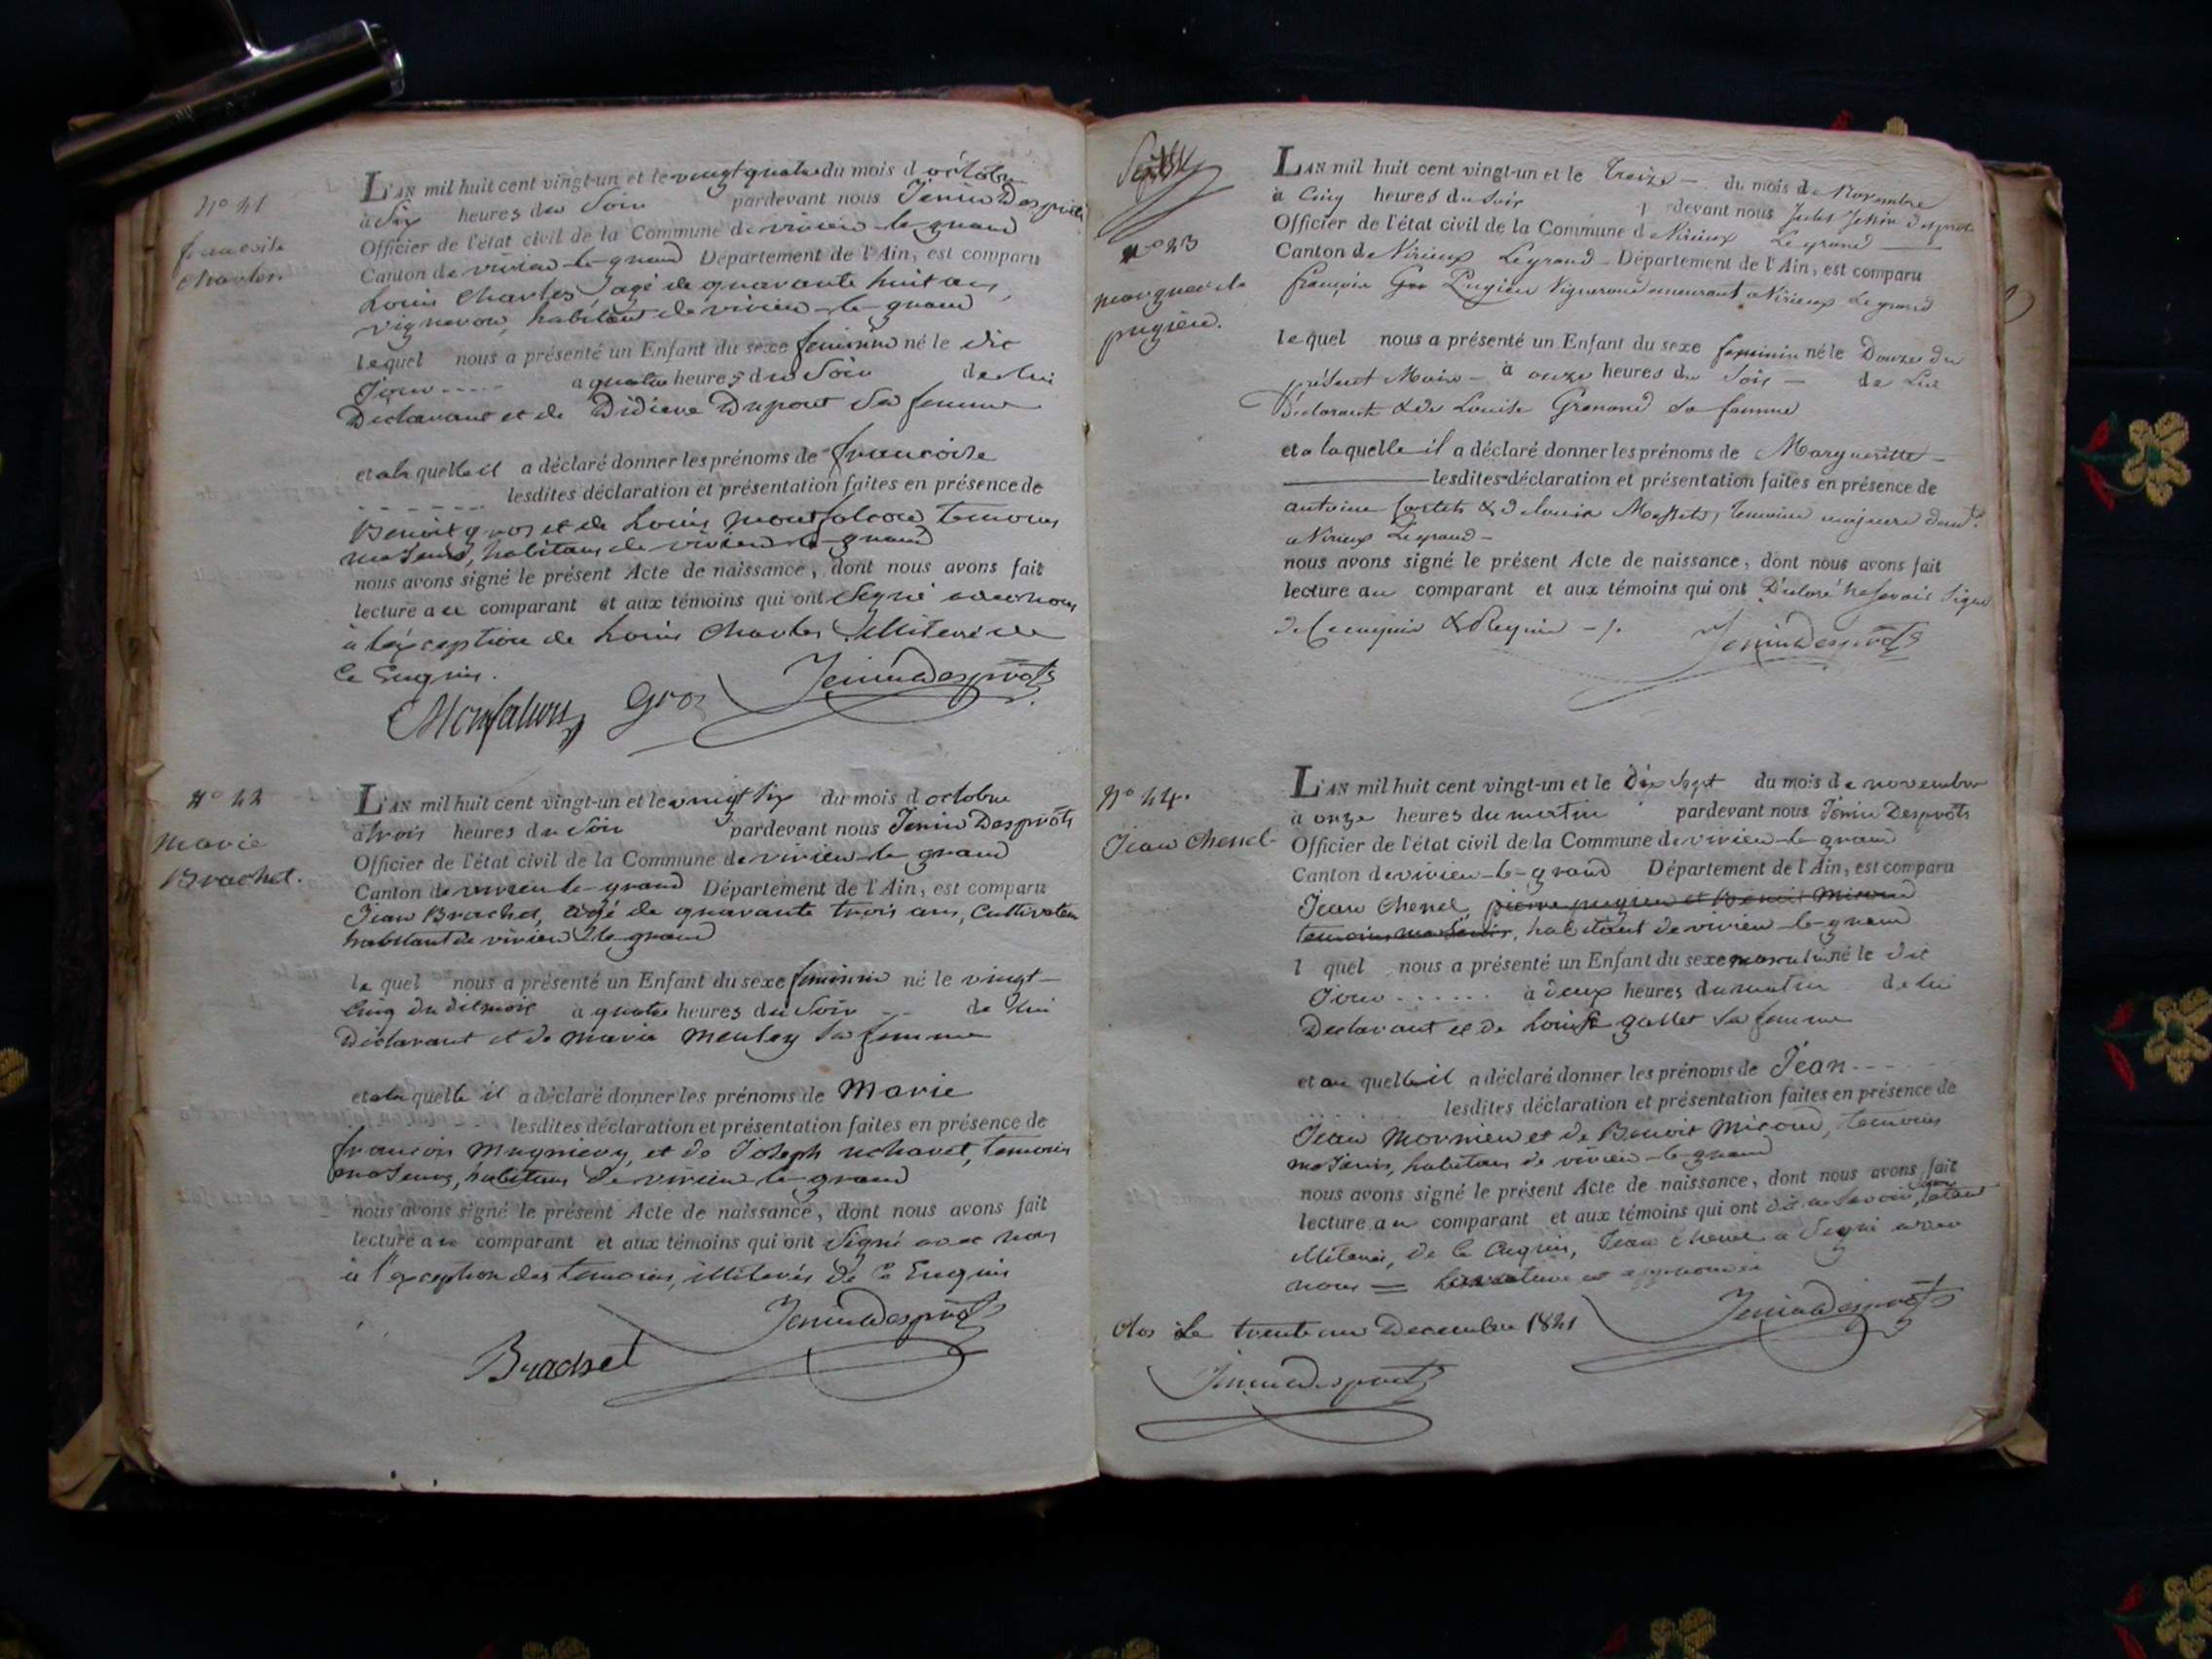 N° 21
francoise
charles.
L'AN mil huit cent vingt-un et le vingt quatre du mois d octobre
à Six heures du Soir pardevant nous Jenin Desprots
Officier de l'état civil de la Commune de virieu-le-grand
Canton de virieu-le-grand Département de l'Ain, est comparu
Louis Charles agé de quarante huit ans,
vigneron, habitant de virieu-le-grand
lequel nous a présenté un Enfant du sexe feminin né le dit
Jour .... a quatre heures du Soir de lui
Declarant et de Didiere Dupont Sa femme
et a la quelle il a déclaré donner les prénoms de francoise
lesdites déclaration et présentation faites en présence de
Benoit gros et de Louis monfalcon temoins
majeurs, habitans de virieu-le-grand
nous avons signé le présent Acte de naissance, dont nous avons fait
lecture au comparant et aux témoins qui ont Signé avec nous
à l'exception de Louis Charles illiteré de
ce Enquis.
Gros JeninDesprots
N° 22
marie
Brachet.
L'AN mil huit cent vingt-un et le vingt Six du mois d octobre
à trois heures du Soir pardevant nous Jenin Desprots
Officier de l'état civil de la Commune de virieu-le-grand
Canton de virieu le-grand Département de l'Ain, est comparu
Jean Brachet, agé de quarante trois ans, Cultivateur
habitant de virieu-le-grand
le quel nous a présenté un Enfant du sexe feminin né le vingt-
Cinq du dit mois a quatre heures du Soir de lui
Déclarant et de marie Sa femme
et a la quelle il a déclaré donner les prénoms de Marie
lesdites déclaration et présentation faites en présence de
francois et de Joseph temoins
majeurs, habitans de virieu-le-grand
nous avons signé le présent Acte de naissance, dont nous avons fait
lecture au comparant et aux témoins qui ont Signé avec nous
à l'exception des temoins, illiterés de ce Enquis
JeninDesprots
Brachet
N° 23
marguerite
pugieu.
L'AN mil huit cent vingt-un et le Treize du mois de Novembre
à Cinq heures du Soir pardevant nous Jenin Desprots
Officier de l'état civil de la Commune de Virieux Legrand
Canton de Virieux Legrand Département de l'Ain, est comparu
françois Pugieu Vigneron demeurant a Virieux Legrand
le quel nous a présenté un Enfant du sexe feminin né le Douze du
présent Mois - à onze heures du Soir - de Lui
Déclarant & de Louise sa femme
et a laquelle il a déclaré donner les prénoms de Margueritte
lesdites déclaration et présentation faites en présence de
antoine & de Louis temoins majeurs
a Virieux Legrand -
nous avons signé le présent Acte de naissance, dont nous avons fait
lecture au comparant et aux témoins qui ont Déclaré ne savoir Signer
de ce enquis & Requis -/.
JeninDesprots
N° 24.
Jean Chenel
L'AN mil huit cent vingt-un et le dix Sept du mois de novembre
à onze heures du matin pardevant nous Jenin Desprots
Officier de l'état civil de la Commune de virieu-le-grand
Canton de virieu-le-grand Département de l'Ain, est comparu
Jean Chenel, pierre pugieu et Benoit Micoud
temoins majeurs, habitant de virieu-le-grand
l quel nous a présenté un Enfant du sexe masculin né le dit
Jour ...... à deux heures du matin de lui
Declarant et de Louise gallet Sa femme
et au quel il a déclaré donner les prénoms de Jean
lesdites déclaration et présentation faites en présence de
Jean Mornieu et de Benoit Micoud, temoins
majeurs, habitans de virieu-le-grand
nous avons signé le présent Acte de naissance, dont nous avons fait
lecture au comparant et aux témoins qui ont dit ne Savoir Signer, étant
illiterés, de ce enquis, Jean Chenel a Signé avec
nous =
JeninDesprots
Clos Le trente un Decembre 1821
JeninDesprots